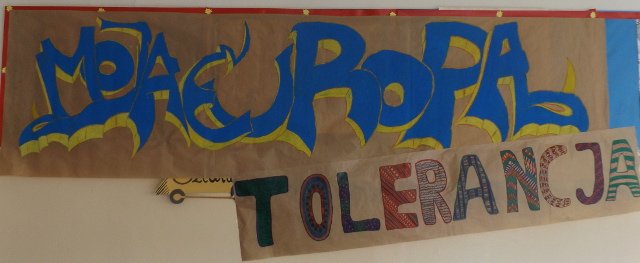 MOJA EUROPA
TOLERANCJA